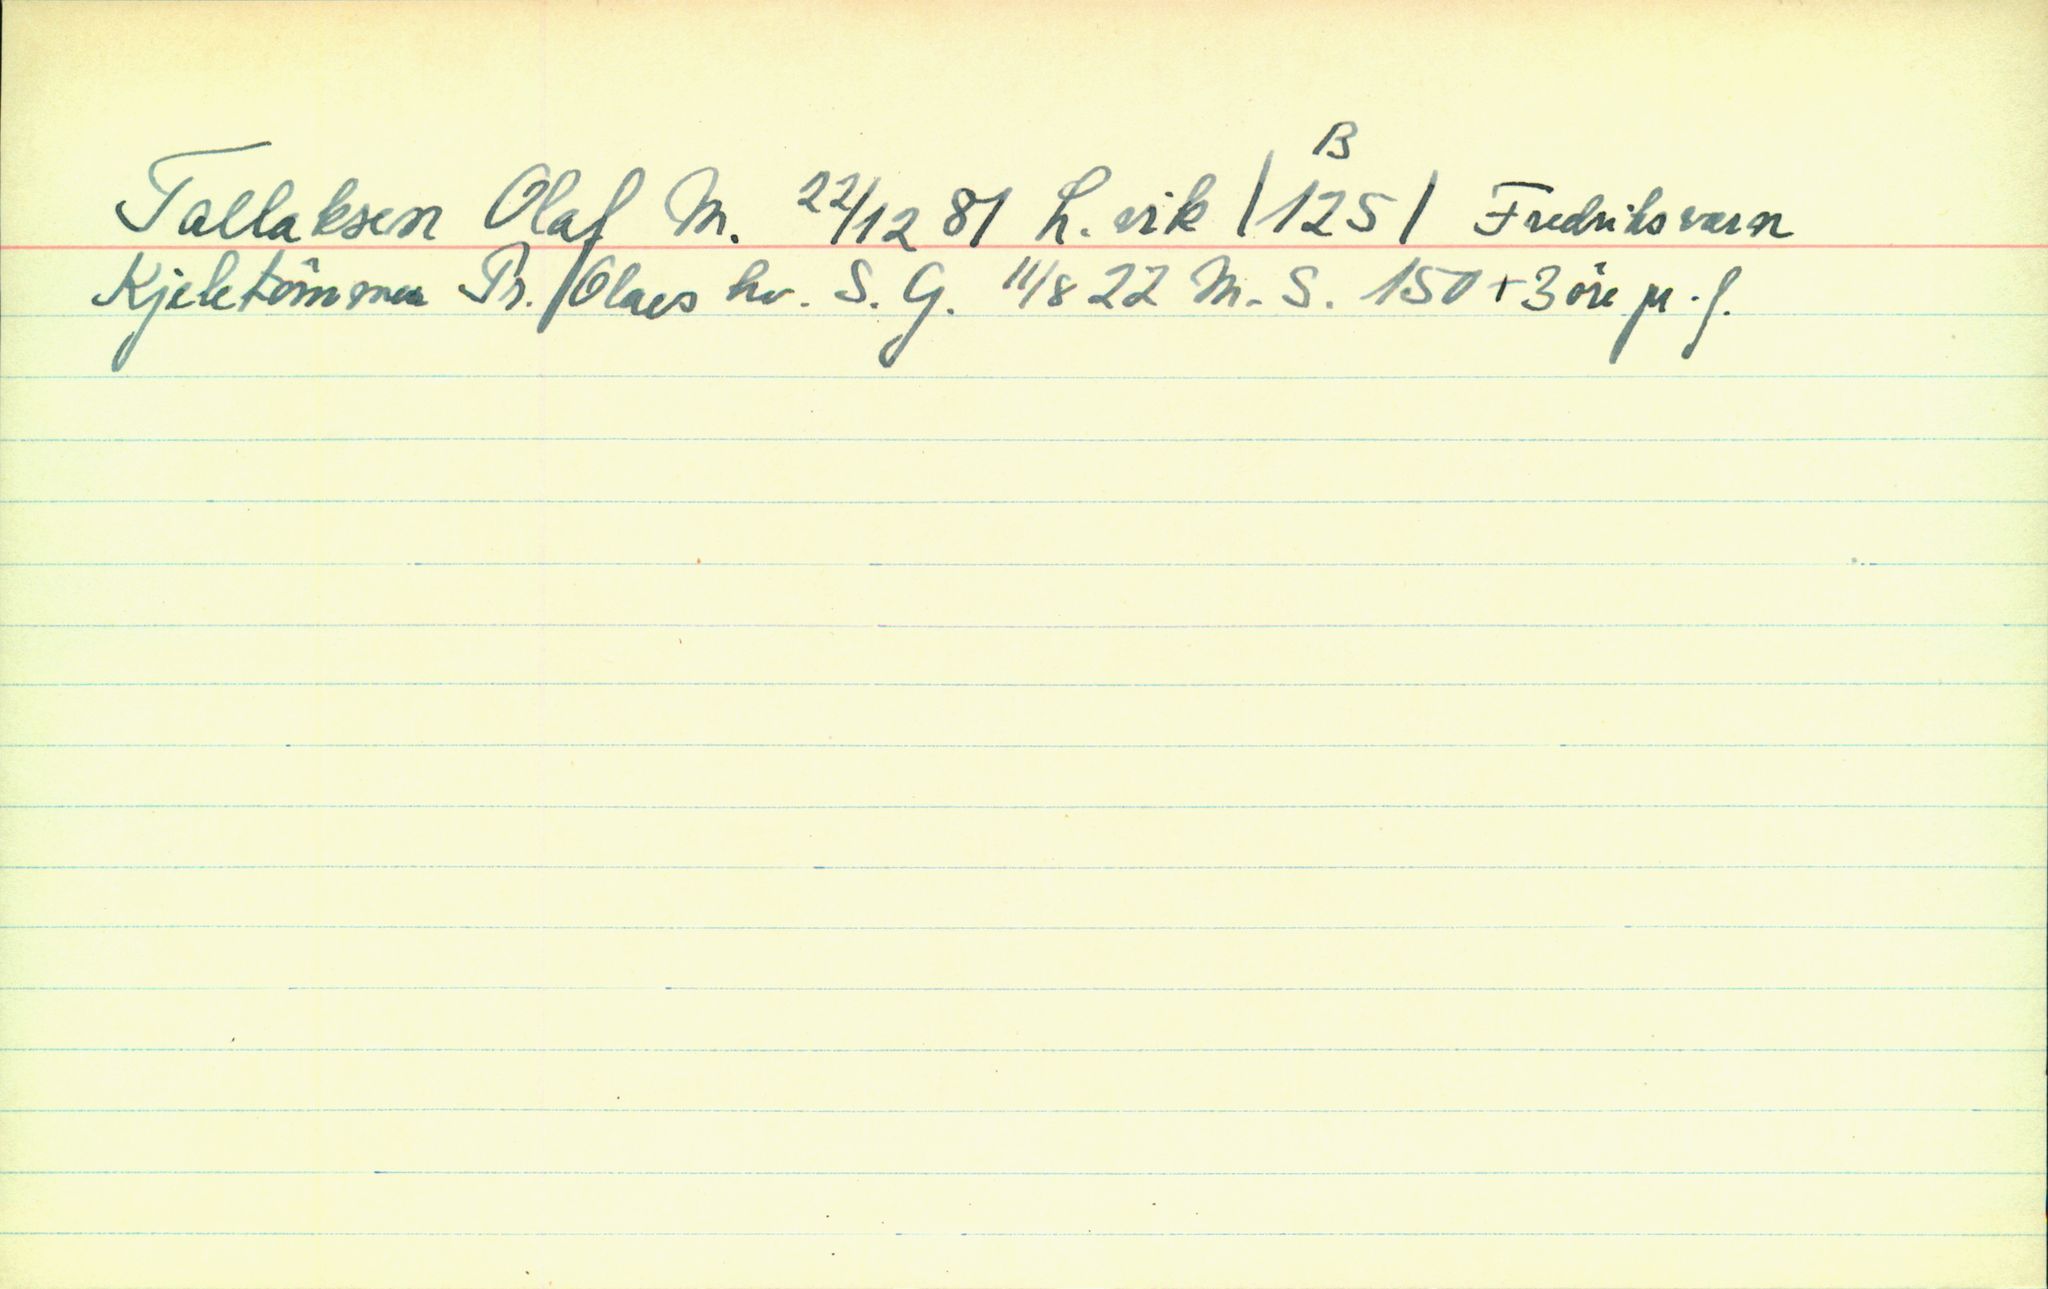 B
Tallaksen Olaf M. 22/12 81 L.vik /125/ Fredriksværn
Kjeletömmer Pr. Olavs hv. S. G. 11/8 22 M.S. 150 + 3 öre pr. f.